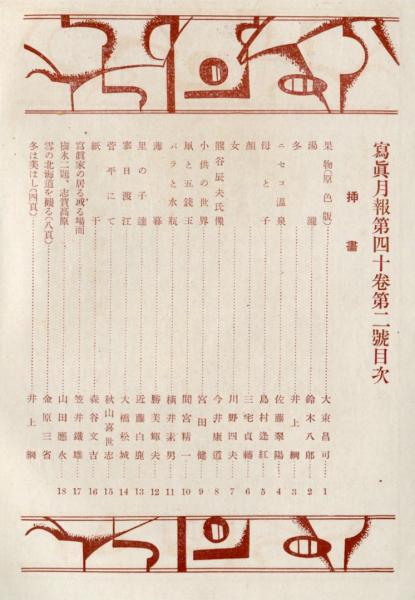 寫眞月報第四十卷第二號目次
挿畫
果物(原色版)……大東昌可 1
湯瀧……鈴木八郎 2
冬……井上綱 3
ニセコ溫泉……佐藤翠陽 4
母と子……島村逢紅 5
顏……三宅貞輔 6
女……川野四夫 7
熊谷辰夫氏像……今井康道 8
小供の世界……宮田健 9
凧と五錢玉……間宮精一 10
バラと水瓶……橫井素男 11
薄暮……勝美輝夫 12
里の子達……近藤白鹿 13
寒日渡江……大橋松城 14
菅平にて……秋山喜世志 15
紙干……森谷文吉 16
寫眞家の居る或る場面……笠井鐵雄 17
樹氷二題、志賀高原……山田應水 18
雪の北海道を觀る(八頁)……金原三省
冬は美はし(四頁)……井上綱